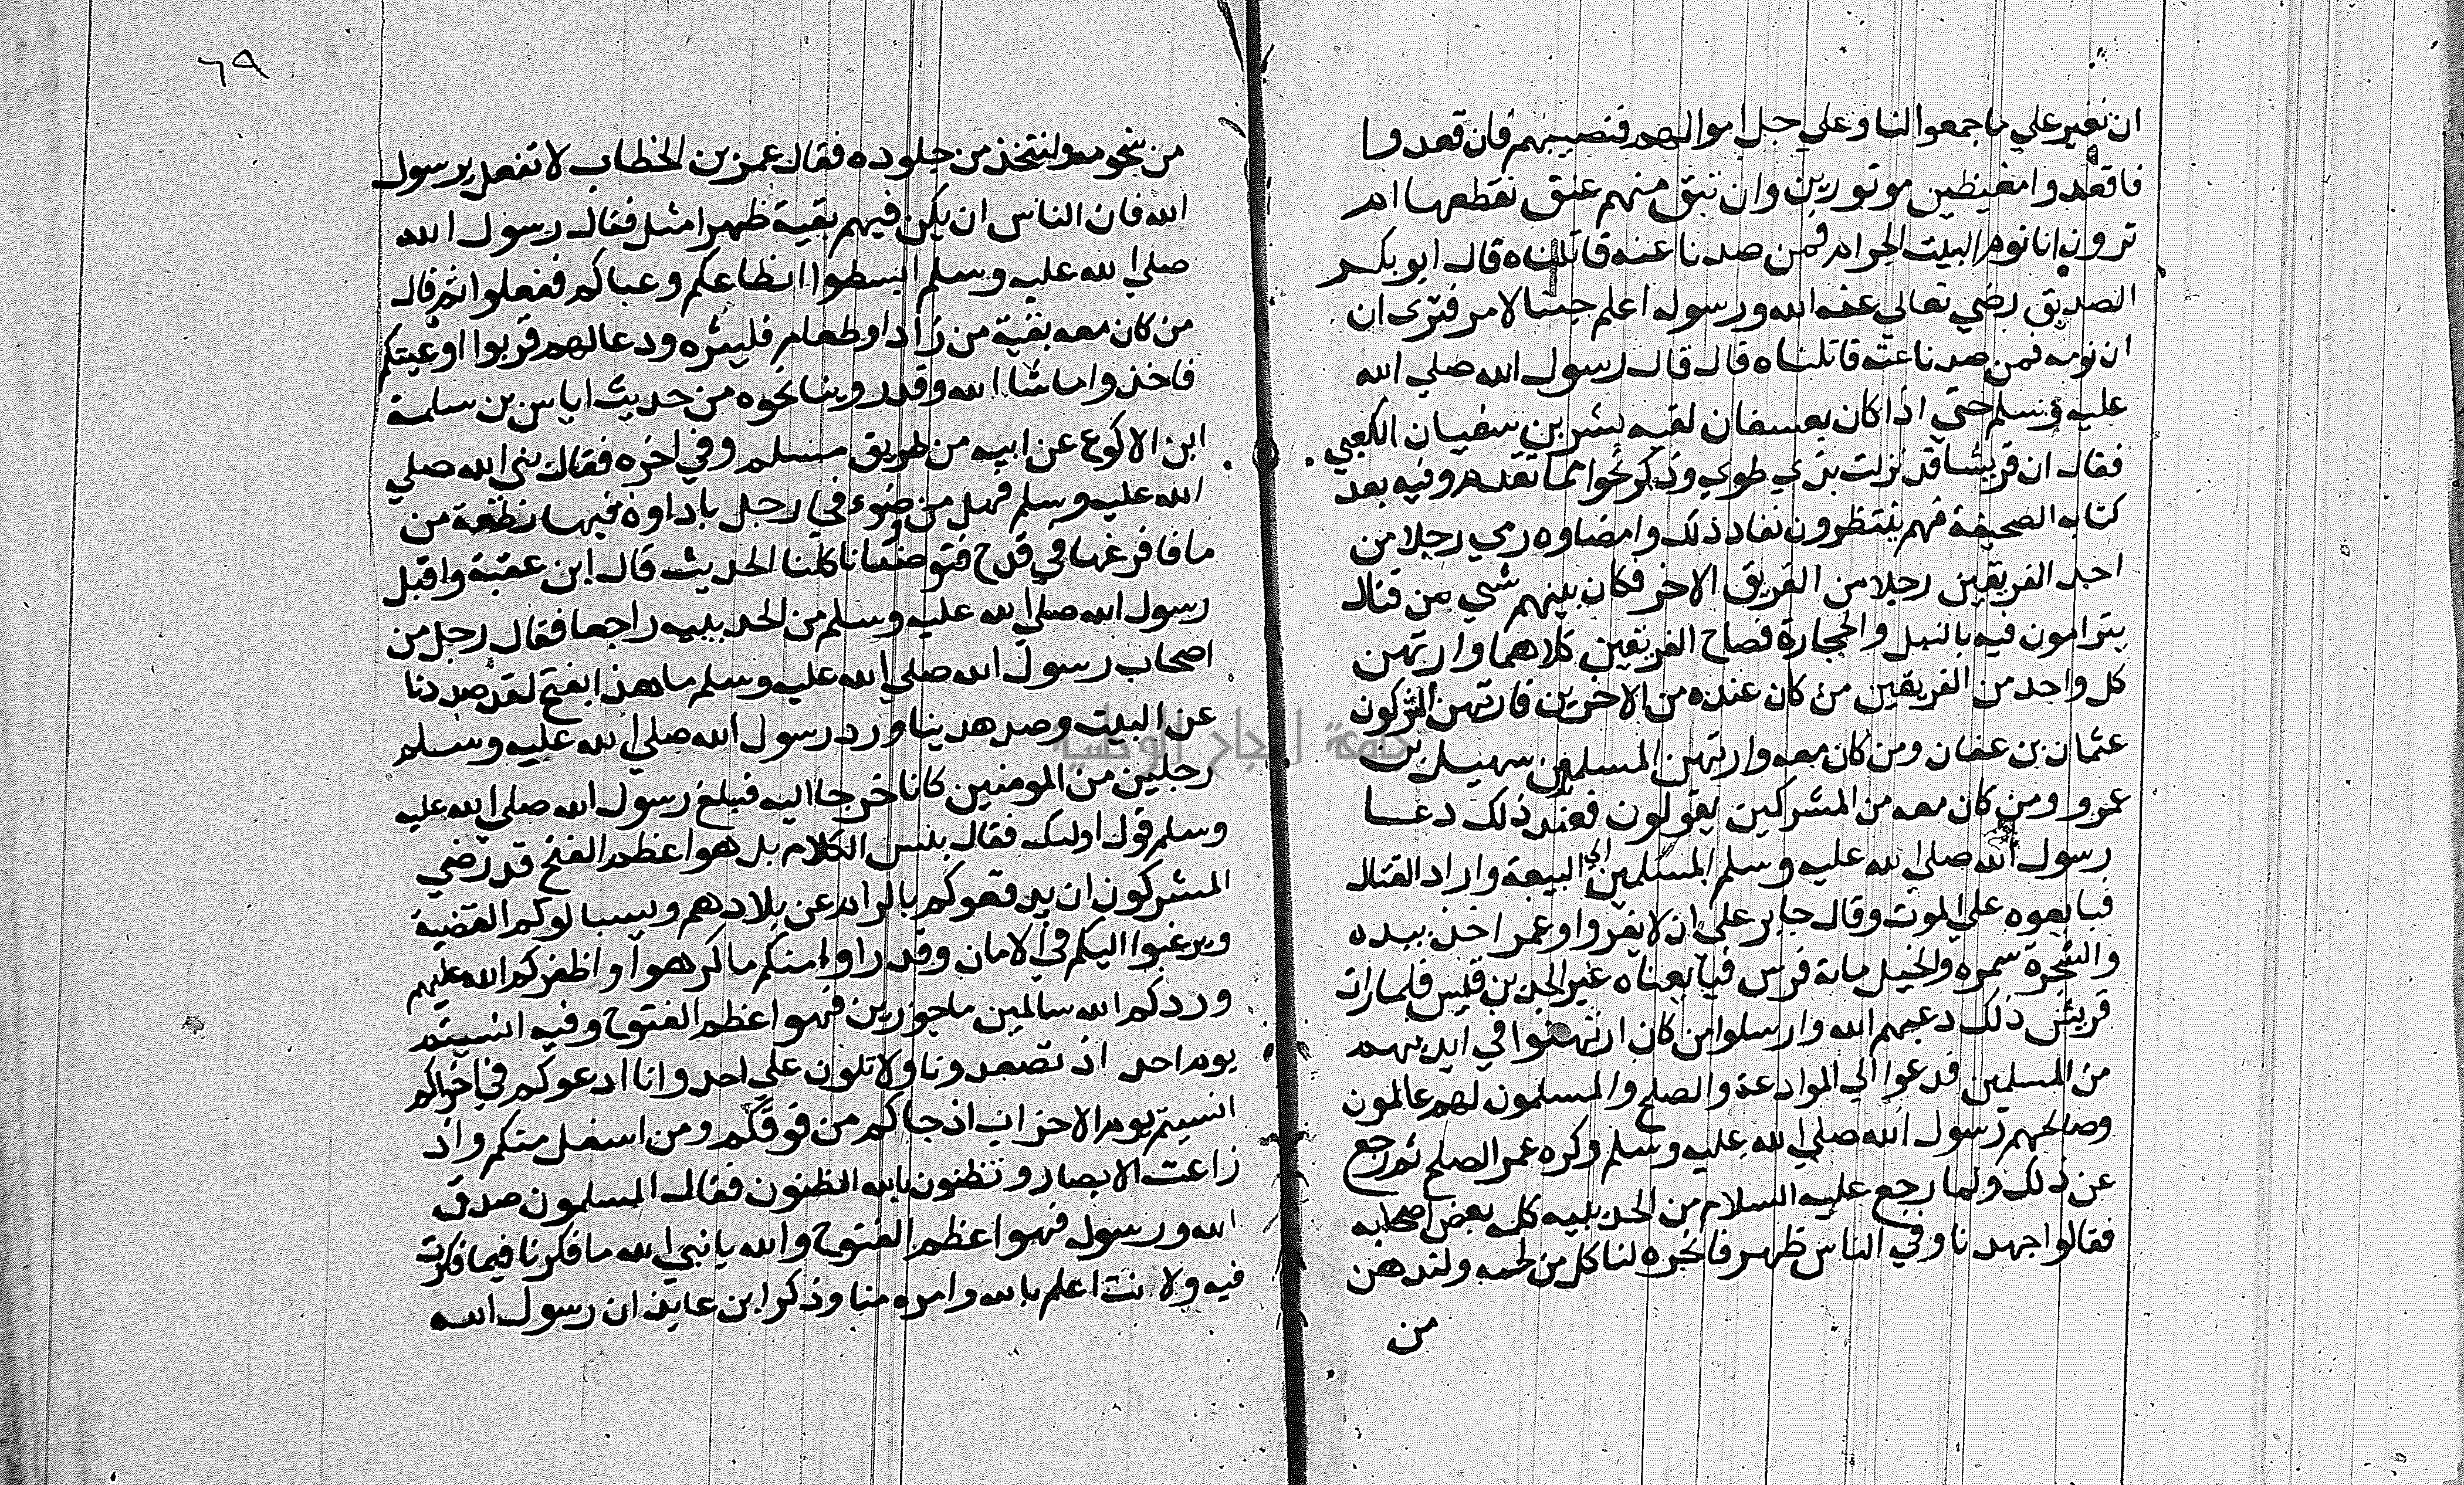 ان نغير علي ما جمعوا لنا وعلي جل اموالهم فنصيبهم فان قعدوا
فاقعدوا مغيظين موتورين وان تبق منهم عنق نقطعها ام
ترون انا نوم البيت الحرام فمن صدنا عنه قاتلناه قال ابو بكر
الصديق رضي تعالي عنه الله ورسوله اعلم جينا لامر فنري ان
ان نومه فمن صدنا عنه قاتلناه قال قال رسول الله صلي الله
عليه وسلم حتي اذا كان بعسفان لقيه بشر بن سفيان الكعبي
فقال ان قريشا قد نزلت بذي طوي وذكر نحوا مما تقدم وفيه بعد
كتابه الصحيفة فهم ينتظرون نفاد ذلك وامضاوه رمي رجلا من
احد الفريقين رجلا من الفريق الاخر فكان بينهم شي من قتال
يترامون فيه بالنبل والحجارة فصاح الفريقين كلاهما وارتهن
كل واحد من الفريقين من كان عنده من الاخرين فارتهن المشركون
عثمان بن عفان ومن كان معه وارتهن المسلمين سهيل بن
عمرو ومن كان معه من المشركين يقولون فعند ذلك دعا
رسول الله صلي الله عليه وسلم المسلمين الي البيعة واراد القتال
فبايعوه علي الموت وقال جابر علي ان لا يفروا وعمر اخذ بيده
والشجرة سمره والخيل ماية فرس فبايعناه غير الجد بن قيس فلما رات
قريش ذلك رعبهم الله وارسلوا من كان ارتهنوا في ايديهم
من المسلمين فدعوا الي الموادعة والصلح والمسلمون لهم عالمون
وصالحهم رسول الله صلي الله عليه وسلم وكره عمر الصلح ثم رجع
عن ذلك ولما رجع عليه السلام من الحديبيه كلمه بعض اصحابه
فقالوا جهدنا وفي الناس ظهر فانحره لنا كل من لحمه ولندهن
من
٦٩
من شحومه ولنتخذ من جلوده فقال عمر بن الخطاب لا تفعل يرسول
الله فان الناس ان يكن فيهم بقية ظهر امثل فقال رسول الله
صلي الله عليه وسلم ابسطوا انطاعكم وعباكم ففعلوا ثم قال
من كان معه بقية من زاد او طعام فلينثره ودعا لهم قربوا اوعيتكم
فاخذوا ما شا الله وقد روينا نحوه من حديث اياس بن سلمة
ابن الاكوع عن ابيه من طريق مسلم وفي اخره فقال نبي الله صلي
الله عليه وسلم فهل من وضوء في رجل باداوه فيها نطفة من
ما فافرغها في قدح فتوضئنا كلنا الحديث قال ابن عقبة واقبل
رسول الله صلي الله عليه وسلم من الحديبيه راجعا فقال رجل من
اصحاب رسول الله صلي الله عليه وسلم ما هذا بفتح لقد صددنا
عن البيت وصد هدينا ورد رسول الله صلي الله عليه وسلم
رجلين من المومنين كانا خرجا اليه فبلغ رسول الله صلي الله عليه
وسلم قول اوليك فقال بئس الكلام بل هو اعظم الفتح قد رضي
المشركون ان يدفعوكم بالراح عن بلادهم ويسالوكم القضية
ويرغبوا اليكم في الامان وقد راوا منكم ما كرهوا واظفركم الله عليهم
وردكم الله سالمين ماجورين فهو اعظم الفتوح وفيه انسيتم
يوم احد اذ تصعدون ولا تلون علي احد وانا ادعوكم في اخراكم
انسيتم يوم الاحزاب اذ جاكم من فوقكم ومن اسفل منكم واذ
زاغت الابصار وتظنون بالله الظنون فقال المسلمون صدق
الله ورسوله فهو اعظم الفتوح والله يا نبي الله ما فكرنا فيما فكرت
فيه ولانت اعلم بالله وامره منا وذكر ابن عايذ ان رسول الله
جامعة النجاح الوطنية